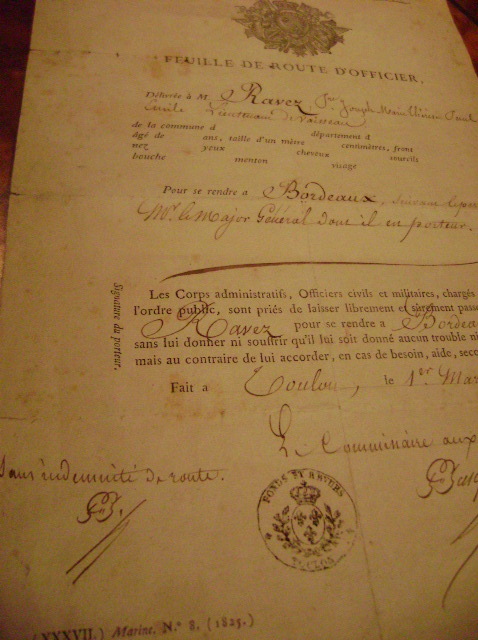 FEUILLE DE ROUTE D'OFFICIER.
Délivrée à M. Ravez, Joseph
Lieutenant de Vaisseau
de la commune d département d
âgé de ans, taille d'un mètre centimètres, front
nez yeux cheveux sourcils
bouche menton visage
Pour se rendre a Bordeaux, suivant
Mr. le Major Général dont il en porteur.
Les Corps administratifs, Officiers civils et militaires, chargés
l'ordre public, sont priés de laisser librement et sûrement passe
Ravez pour se rendre a Bordea
sans lui donner ni souffrir qu'il lui soit donné aucun trouble ni
mais au contraire de lui accorder, en cas de besoin, aide, seco
Signature du porteur.
Fait a Toulon, le 1er Mar
Le Commissaire aux
Sans indemnité de route.
TOULON
(XXXVII.) Marine. N.° 8. (1825.)